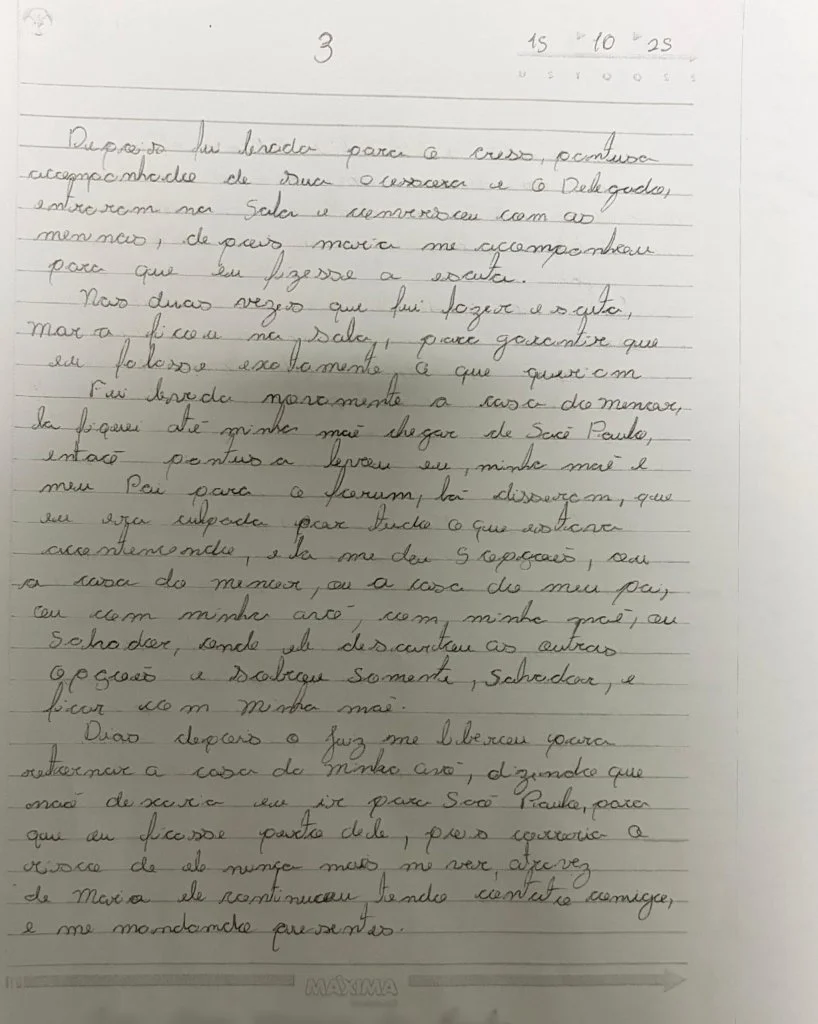 3
15 10 25
D S T Q Q S S
Depois fui levada para o cress, pantusa
accompanhado de sua acessora e o Delegado,
entraram na Sala e conversou com as
meninas, depois maria me accompanhou
para que eu fizesse a escuta.
Nas duas vezes que fui fazer escuta,
Maria ficou na sala, para garantir que
eu falasse exatamente o que queriam
Fui levada novamente a casa do menor,
la fiquei até minha maê chegar de Saõ Paulo,
entaõ pantusa levou eu, minha maê e
meu Pai para o forum, lá disseram, que
eu era culpada por tudo o que estava
acontencendo, e la me deu 5 opçoẽs, ou
a casa do menor, ou a casa do meu pai,
ou com minha avó, com minha maê, ou
Salvador, onde ele descartou as outras
opçoẽs e sobrou somente, Salvador, e
ficar com minha maê.
Dias depois o Juiz me liberou para
retornar a casa da minha avó, dizendo que
naõ deixaria eu ir para Saõ Paulo, para
que eu ficasse perto dele, pois correria o
risco de ele nunca mais me ver, atravez
de Maria ele continuou tendo contato comigo,
e me mandando presentes.
MÁXIMA